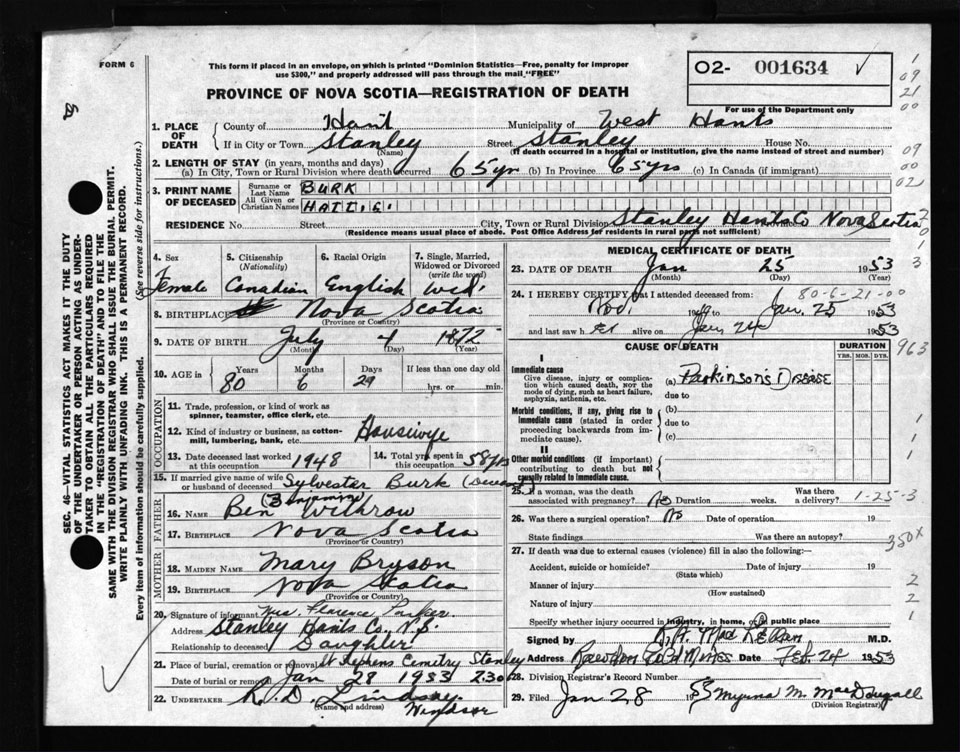 FORM 6
This form if placed in an envelope, on which is printed "Dominion Statistics—Free, penalty for improper
use $300," and properly addressed will pass through the mail "FREE"
O2- 001634 ✓
PROVINCE OF NOVA SCOTIA—REGISTRATION OF DEATH
For use of the Department only
1. PLACE OF DEATH { County of Hant Municipality of West Hants
If in City or Town Stanley Street Stanley House No.
(Name) (If death occurred in a hospital or institution, give the name instead of street and number)
2. LENGTH OF STAY (in years, months and days)
(a) In City, Town or Rural Division where death occurred 65 yr (b) In Province 65 yrs (c) In Canada (if immigrant)
3. PRINT NAME OF DECEASED { Surname or Last Name BURK
All Given or Christian Names HATTIE
RESIDENCE No. Street City, Town or Rural Division Stanley Hants Co Nova Scotia
(Residence means usual place of abode. Post Office Address for residents in rural parts not sufficient)
4. Sex 5. Citizenship (Nationality) 6. Racial Origin 7. Single, Married, Widowed or Divorced (write the word)
Female Canadian English Wid.
8. BIRTHPLACE Nova Scotia
(Province or Country)
9. DATE OF BIRTH July 4 1872
(Month) (Day) (Year)
10. AGE in { Years Months Days If less than one day old
80 6 29 hrs. or min.
OCCUPATION
11. Trade, profession, or kind of work as
spinner, teamster, office clerk, etc.
12. Kind of industry or business, as cotton-
mill, lumbering, bank, etc. Housiwife
13. Date deceased last worked at this occupation 1948 14. Total yrs spent in this occupation 58 yrs
15. If married give name of wife or husband of deceased Sylvester Burk
FATHER
16. NAME Ben Benjamine Withrow
17. BIRTHPLACE Nova Scotia
(Province or Country)
MOTHER
18. MAIDEN NAME Mary Bryson
19. BIRTHPLACE Nova Scotia
(Province or Country)
20. Signature of informant Mrs. Florence Parker
Address Stanley Hants Co. N.S.
Relationship to deceased Daughter
21. Place of burial, cremation or removal St Stephens Cemetry Stanley
Date of burial or removal Jan 28 1953 2.30
22. UNDERTAKER R. D. Lindsay Windsor
(Name and address)
MEDICAL CERTIFICATE OF DEATH
23. DATE OF DEATH Jan 25 1953
(Month) (Day) (Year)
80-6-21-00
24. I HEREBY CERTIFY that I attended deceased from:
Nov. 19 Jan. 25 1953
and last saw her alive on Jan 24 1953
CAUSE OF DEATH DURATION
YRS. MOS. DYS.
I
Immediate cause
Give disease, injury or complication which caused death, NOT the mode of dying, such as heart failure, asphyxia, asthenia, etc.
(a) Parkinson's Disease
due to
Morbid conditions, if any, giving rise to immediate cause (stated in order proceeding backwards from immediate cause).
(b)
due to
(c)
II
Other morbid conditions (if important) contributing to death but not causally related to immediate cause.
25. If a woman, was the death associated with pregnancy? No Duration weeks. Was there a delivery?
1-25-3
26. Was there a surgical operation? No Date of operation 19
State findings Was there an autopsy?
350X
27. If death was due to external causes (violence) fill in also the following:—
Accident, suicide or homicide? Date of injury 19
(State which)
Manner of injury
(How sustained)
Nature of injury
Specify whether injury occurred in industry, in home, or in public place
Signed by R. A. MacLellan M.D.
Address Rawdon Gold Mines Date Feb. 24 1953
28. Division Registrar's Record Number
29. Filed Jan 28 1953 Myrna M. MacDougall
(Division Registrar)
SEC. 46—VITAL STATISTICS ACT MAKES IT THE DUTY
OF THE UNDERTAKER OR PERSON ACTING AS UNDER-
TAKER TO OBTAIN ALL THE PARTICULARS REQUIRED
IN THE "REGISTRATION OF DEATH" AND TO FILE THE
SAME WITH THE DIVISION REGISTRAR WHO SHALL ISSUE THE BURIAL PERMIT.
WRITE PLAINLY WITH UNFADING INK. THIS IS A PERMANENT RECORD.
Every item of information should be carefully supplied. (See reverse side for instructions.)
1
09
21
00
09
00
02
2
0
1
3
963
1
1
1
2
2
1